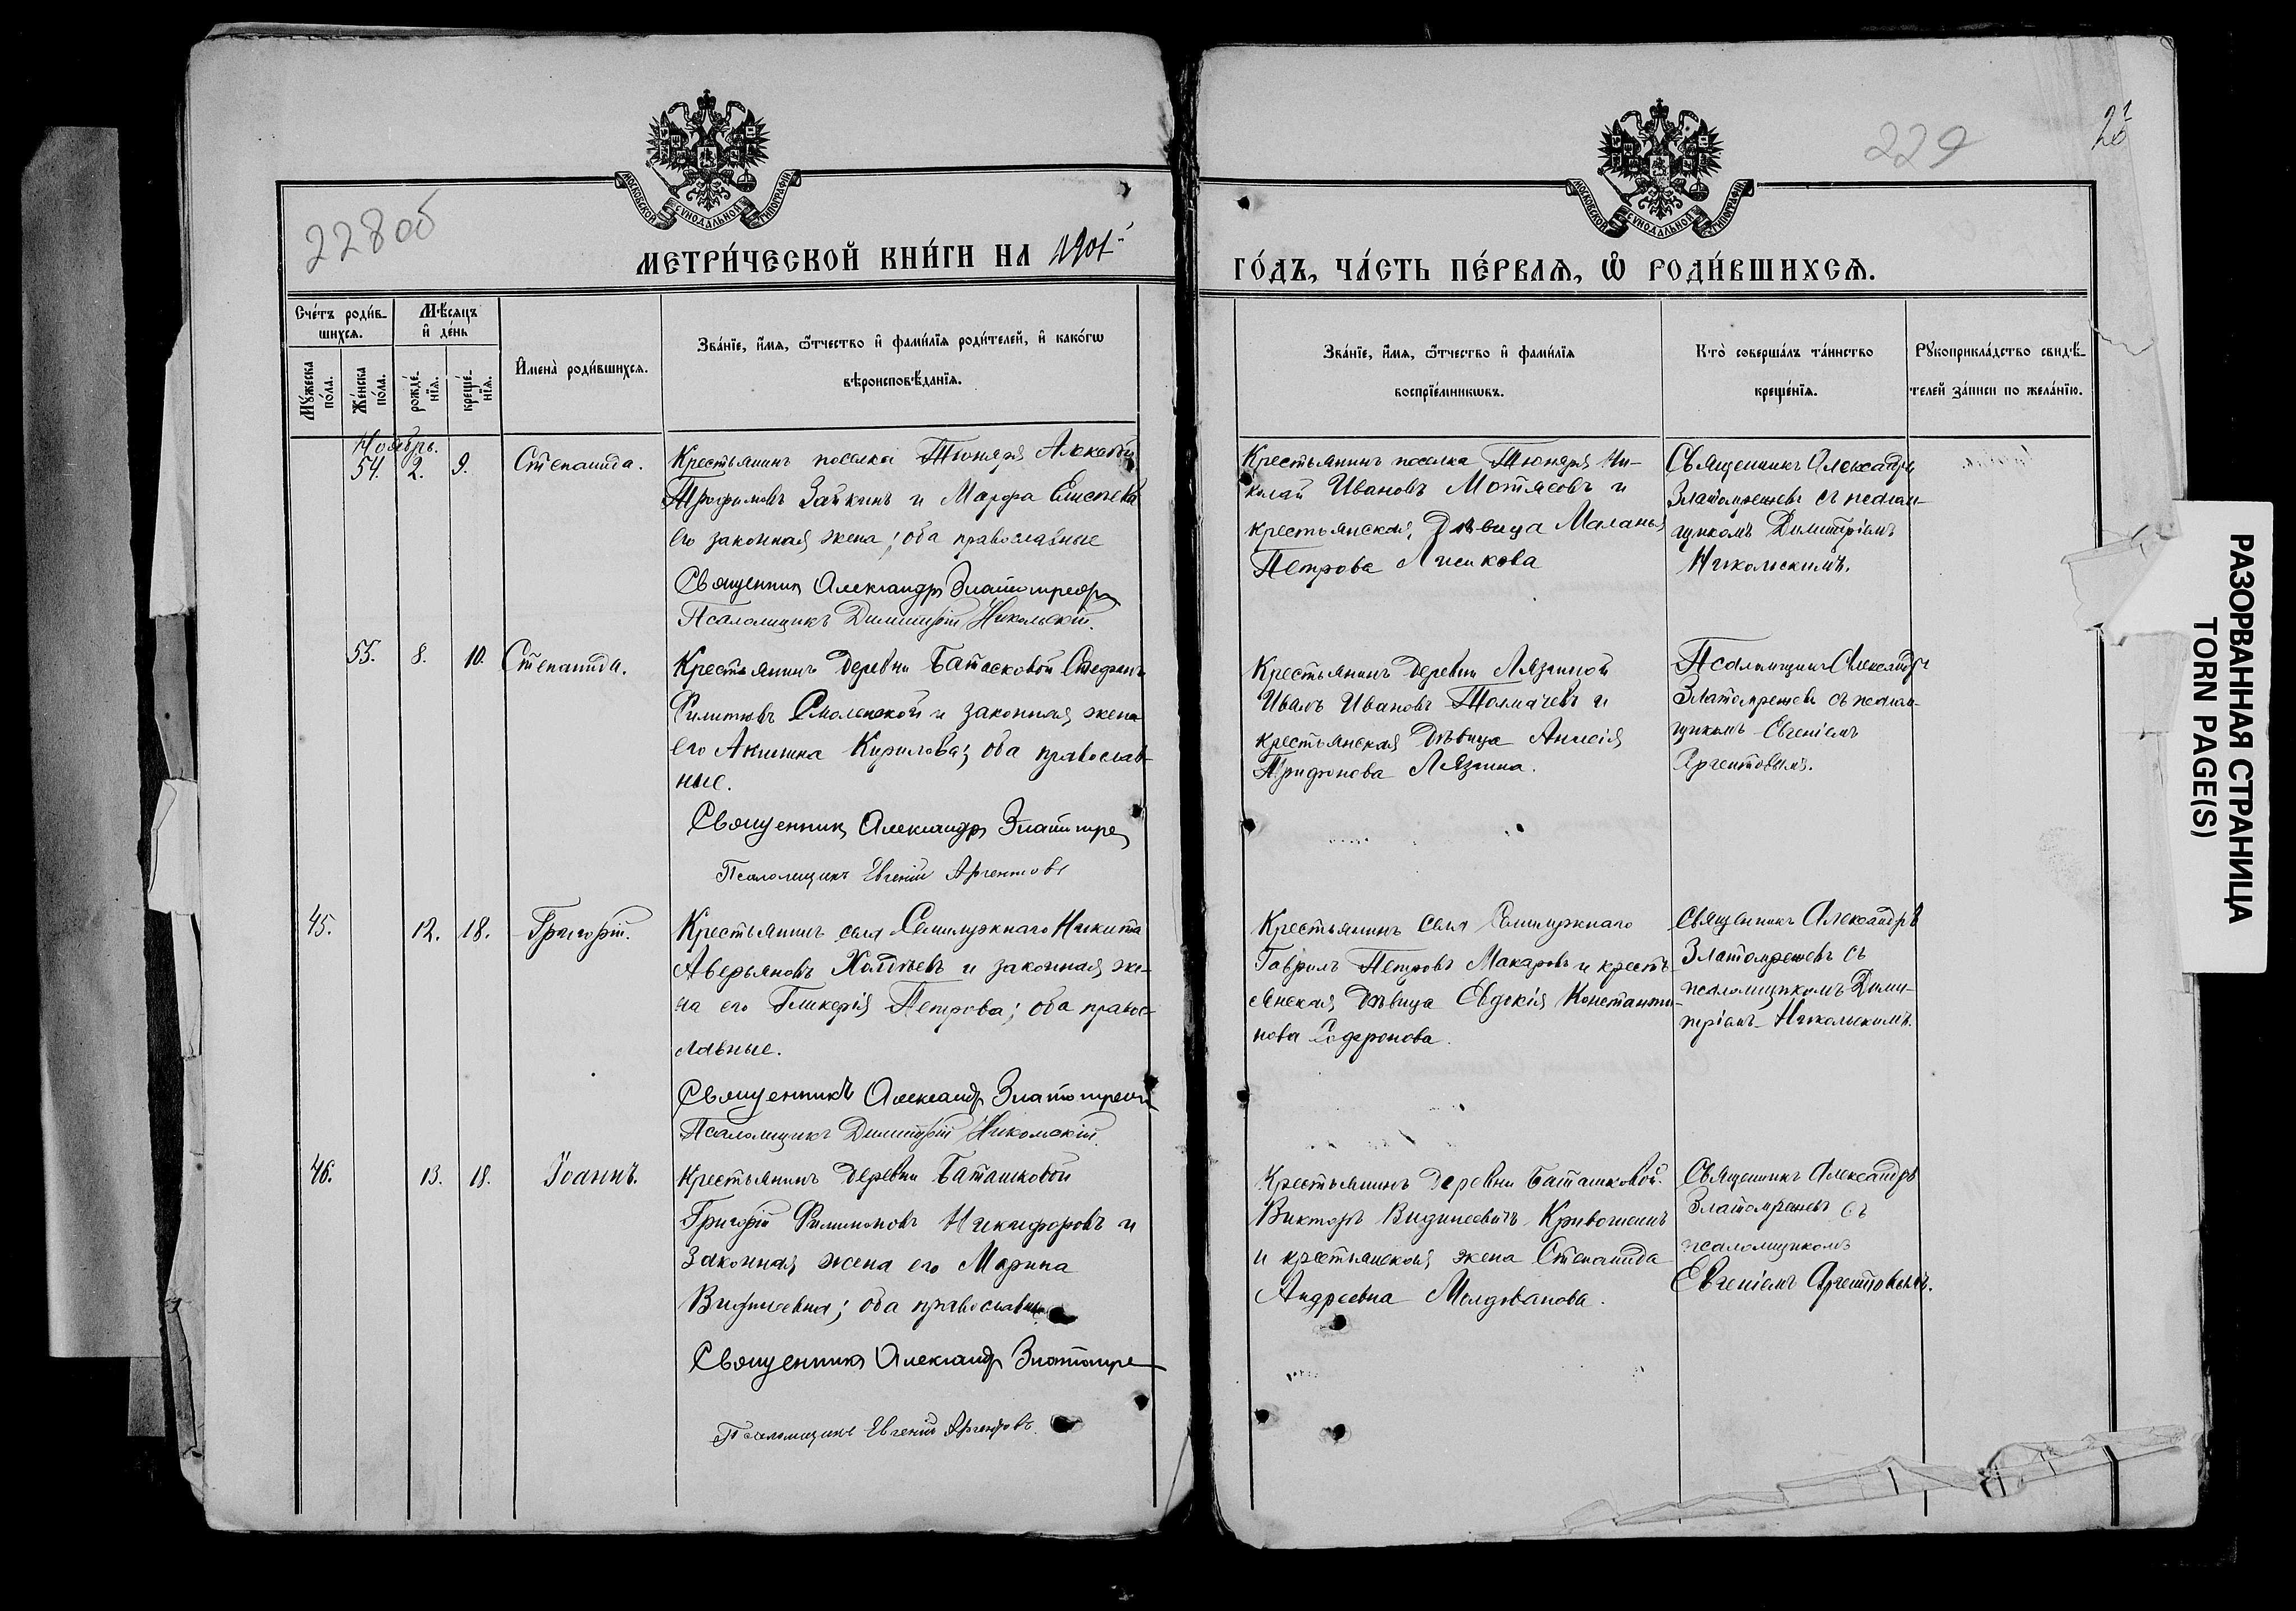 228 об
229
МОСКОВСКОЙ СѴНОДАЛЬНОЙ ТИПОГРАФІИ
МОСКОВСКОЙ СѴНОДАЛЬНОЙ ТИПОГРАФІИ
МЕТРИ́ЧЕСКОЙ КНИ́ГИ НА 1901
ГО́ДЪ, ЧА́СТЬ ПЕ́РВАЯ, Ѡ РОДИ́ВШИХСЯ.
Сче́тъ роди́в-
шихся.
Мѣ́сяцъ
и де́нь
Му́жеска
по́ла.
Же́нска
по́ла.
рожде́-
нїя.
креще́-
нїя.
Имена̀ роди́вшихся.
Зва́нїе, и́мя, ѻ́тчество и фами́лїя роди́телей, и како́гѡ
вѣроисповѣ́данїя.
Зва́нїе, и́мя, ѻ́тчество и фами́лїя
воспрїе́мникѡвъ.
Кто̀ соверша́лъ та́инство
креще́нїя.
Рукоприкла́дство свидѣ́-
телей за́писи по жела́нїю.
Ноябрь.
54. 2. 9. Степанида.
Крестьянинъ поселка Тюняря Алексѣй
Трофимовъ Зайкинъ и Марфа
его законная жена; оба православные
Священникъ Александръ
Псаломщикъ Димитрій Никольскій.
Крестьянинъ поселка Тюняря Ни-
колай Ивановъ Мотясовъ и
крестьянская дѣвица Маланья
Петрова Лисикова
Священникъ Александръ
съ псалом-
щикомъ Димитріемъ
Никольскимъ.
55. 8. 10. Степанида.
Крестьянинъ деревни Батасковой Стефанъ
Филиповъ Смоленской и законная жена
его Акилина Кирилова; оба православ-
ные.
Священникъ Александръ
Псаломщикъ Евгеній Аргентовъ
Крестьянинъ деревни Лязгиной
Иванъ Ивановъ Толмачевъ и
крестьянская дѣвица Анисія
Трифонова Лязгина.
Псаломщикъ Александръ
съ псалом-
щикомъ Евгеніемъ
Аргентовымъ.
45. 12. 18. Григорій.
Крестьянинъ села Семилужнаго Никита
Аверьяновъ и законная же-
на его Гликерія Петрова; оба право-
славные.
Священникъ Александръ
Псаломщикъ Димитрій Никольскій.
Крестьянинъ села Семилужнаго
Гавріилъ Петровъ Макаровъ и кресть-
янская дѣвица Евдокія Константи-
нова Сафронова.
Священникъ Александръ
съ
псаломщикомъ Дими-
тріемъ Никольскимъ.
46. 13. 18. Іоаннъ.
Крестьянинъ деревни Баташковой
Григорій Филимоновъ Никифоровъ и
законная жена его Марина
оба православные
Священникъ Александръ
Псаломщикъ Евгеній Аргентовъ.
Крестьянинъ деревни Баташковой
Викторъ Кривошеинъ
и крестьянская жена Степанида
Андреевна Молдованова.
Священникъ Александръ
съ
псаломщикомъ
Евгеніемъ Аргентовымъ.
РАЗОРВАННАЯ СТРАНИЦА
TORN PAGE(S)